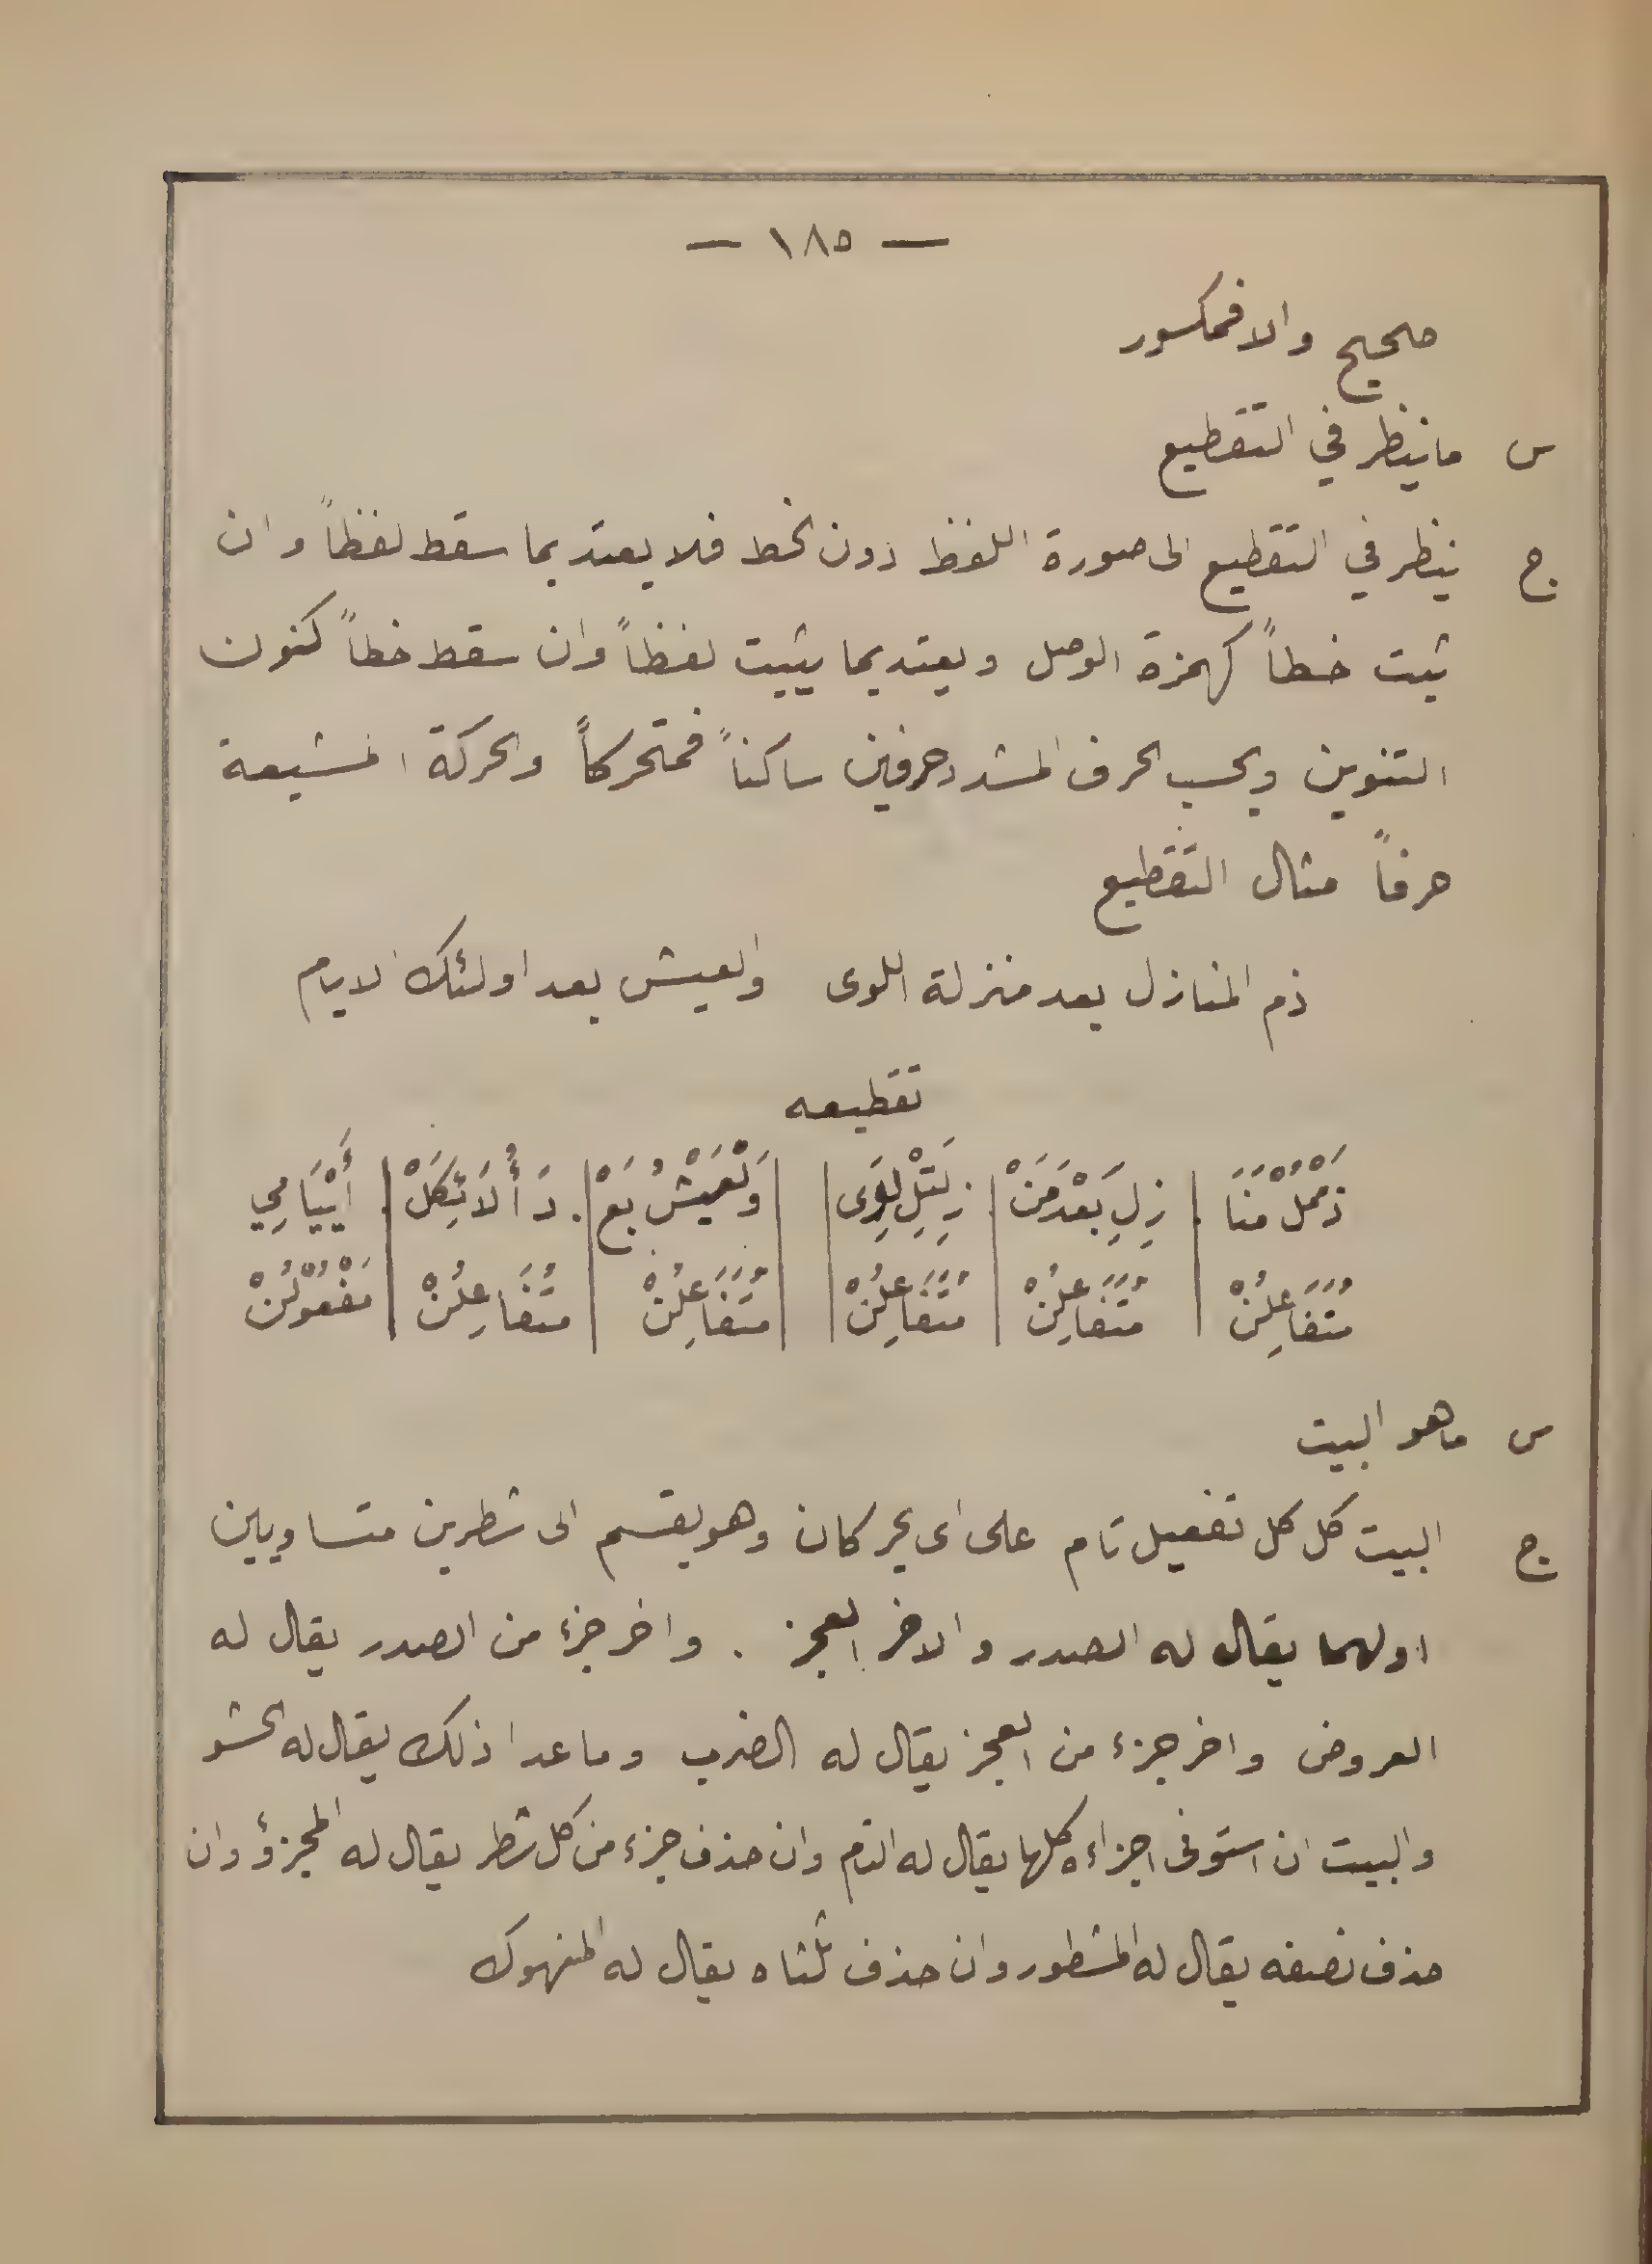 — ١٨٥ —
صحيح والا فمكسور
س ما ينظر في التقطيع
ج ينظر في التقطيع الى صورة اللفظ دون الخط فلا يعتد بما سقط لفظاً وان
ثبت خطاً كهمزة الوصل ويعتد بما يثبت لفظاً وان سقط خطاً كنون
التنوين ويحسب الحرف المشدد حرفين ساكناً فمتحركاً والحركة المشبعة
حرفاً مثال التقطيع
ذم المنازل بعد منزلة اللوى والعيش بعد اولئك الايام
تقطيعه
ذَمْمُلْ مَنَا | زِلِ بَعْدَ مَنْ | زِلَتِلْ لِوَى | وَلْعَيْشُ بَعْ | دَ أُلَائِكَلْ | أَيْيَامِي
مُتَفَاعِلُنْ | مُتَفَاعِلُنْ | مُتَفَاعِلُنْ | مُتَفَاعِلُنْ | مُتَفَاعِلُنْ | مَفْعُولُنْ
س ما هو البيت
ج البيت كل كل تفعيل تام على اى بحر كان وهو يقسم الى شطرين متساويين
اولهما يقال له الصدر والاخر العجز . واخر جزء من الصدر يقال له
العروض واخر جزء من العجز يقال له الضرب وما عدا ذلك يقال له الحشو
والبيت ان استوفى اجزاءه كلها يقال له التام وان حذف جزء من كل شطر يقال له المجزؤ وان
حذف نصفه يقال له المشطور وان حذف ثلثاه يقال له المنهوك